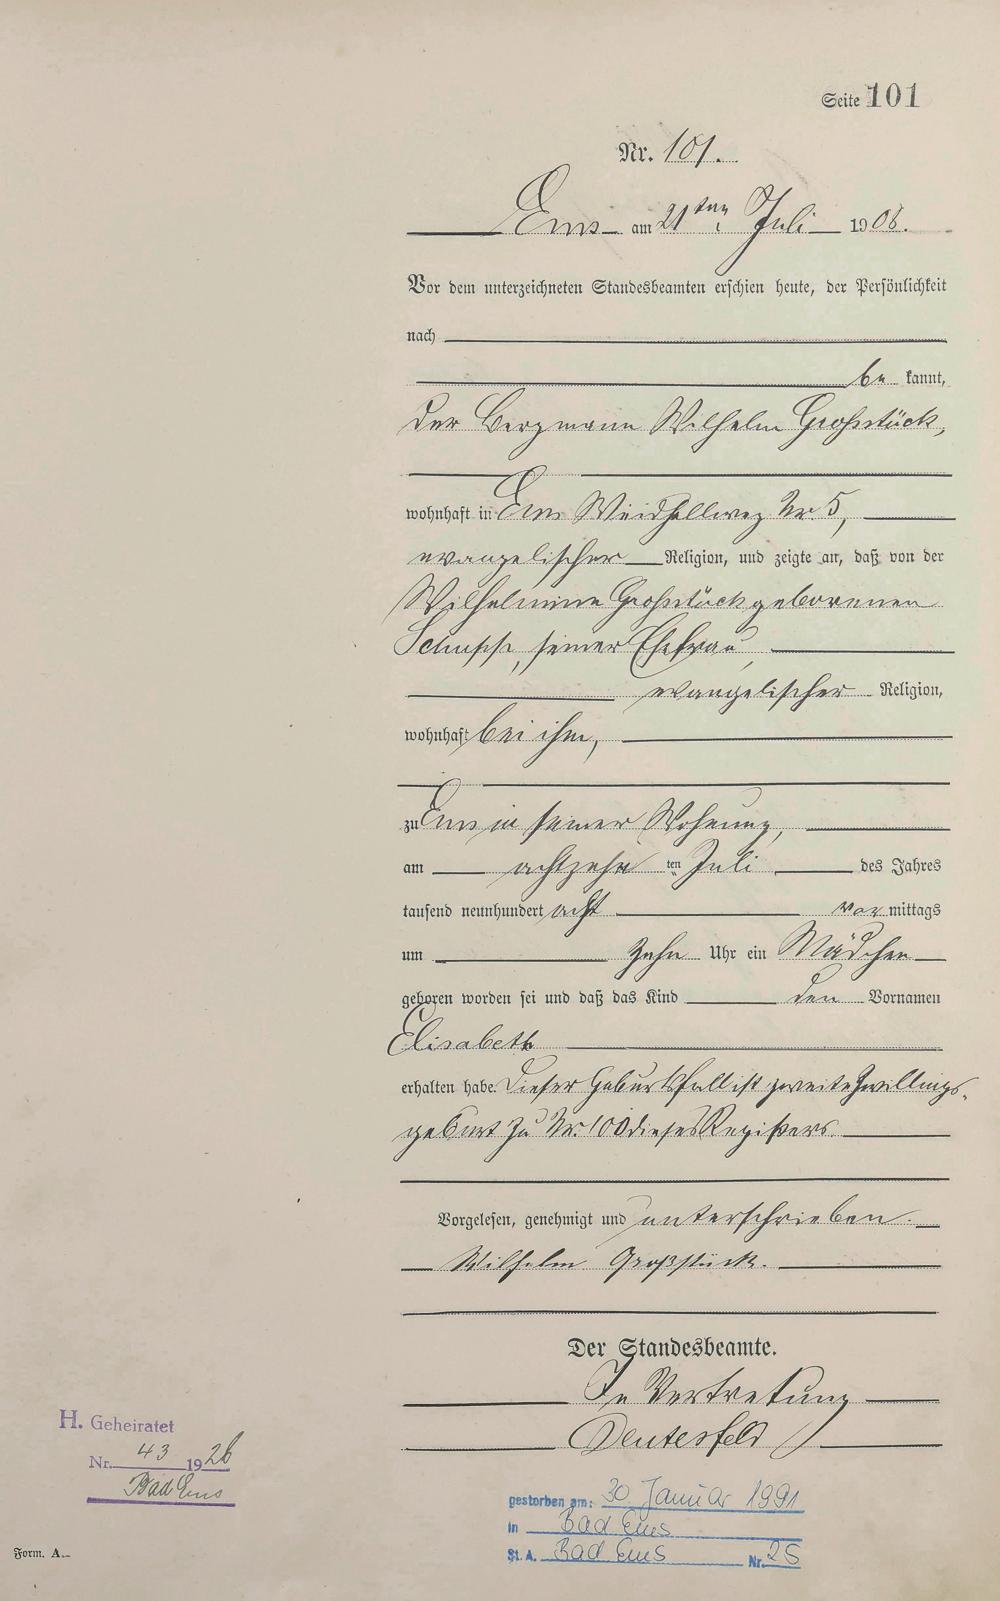 Seite 101
Nr. 101.
Ems am 21ten Juli 1908.
Vor dem unterzeichneten Standesbeamten erschien heute, der Persönlichkeit
nach
be kannt,
der Bergmann Wilhelm Großstück,
wohnhaft in Ems Nr 5,
evangelischer Religion, und zeigte an, daß von der
Wilhelmine Großstück geborenen
Schupp, seiner Ehefrau,
evangelischer Religion,
wohnhaft bei ihm,
zu Ems in seiner Wohnung,
am achtzehn ten Juli des Jahres
tausend neunhundert acht vor mittags
um zehn Uhr ein Mädchen
geboren worden sei und daß das Kind den Vornamen
Elisabeth
erhalten habe. Dieser Geburtsfall ist zweite Zwillings-
geburt zu Nr. 100 dieses Registers.
Vorgelesen, genehmigt und unterschrieben.
Wilhelm Großstück.
Der Standesbeamte.
In Vertretung
H. Geheiratet
Nr. 43 1926
Bad Ems
gestorben am: 30 Januar 1991
in Bad Ems
St. A. Bad Ems Nr. 26
Form. A.